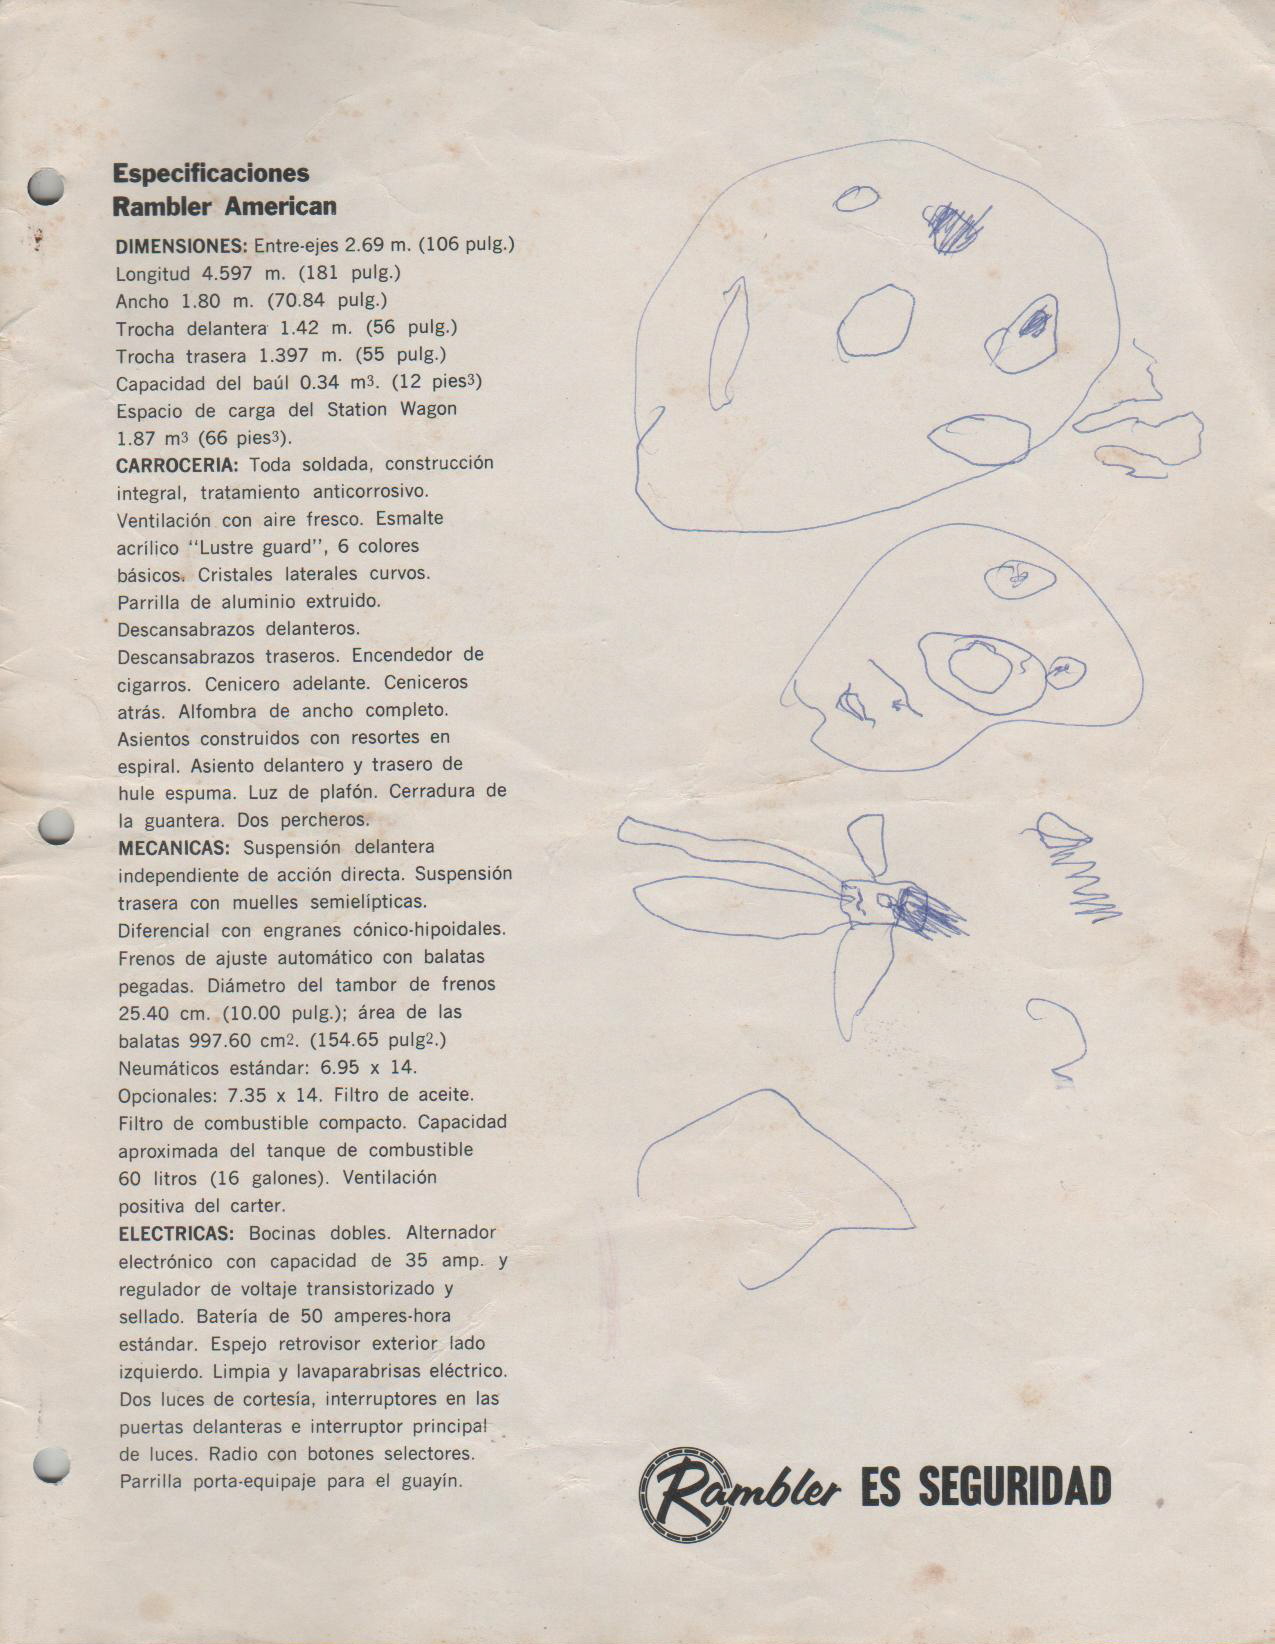 Especificaciones
Rambler American
DIMENSIONES: Entre-ejes 2.69 m. (106 pulg.)
Longitud 4.597 m. (181 pulg.)
Ancho 1.80 m. (70.84 pulg.)
Trocha delantera 1.42 m. (56 pulg.)
Trocha trasera 1.397 m. (55 pulg.)
Capacidad del baúl 0.34 m³. (12 pies³)
Espacio de carga del Station Wagon
1.87 m³ (66 pies³).
CARROCERIA: Toda soldada, construcción
integral, tratamiento anticorrosivo.
Ventilación con aire fresco. Esmalte
acrílico “Lustre guard”, 6 colores
básicos. Cristales laterales curvos.
Parrilla de aluminio extruido.
Descansabrazos delanteros.
Descansabrazos traseros. Encendedor de
cigarros. Cenicero adelante. Ceniceros
atrás. Alfombra de ancho completo.
Asientos construidos con resortes en
espiral. Asiento delantero y trasero de
hule espuma. Luz de plafón. Cerradura de
la guantera. Dos percheros.
MECANICAS: Suspensión delantera
independiente de acción directa. Suspensión
trasera con muelles semielípticas.
Diferencial con engranes cónico-hipoidales.
Frenos de ajuste automático con balatas
pegadas. Diámetro del tambor de frenos
25.40 cm. (10.00 pulg.); área de las
balatas 997.60 cm². (154.65 pulg².)
Neumáticos estándar: 6.95 x 14.
Opcionales: 7.35 x 14. Filtro de aceite.
Filtro de combustible compacto. Capacidad
aproximada del tanque de combustible
60 litros (16 galones). Ventilación
positiva del carter.
ELECTRICAS: Bocinas dobles. Alternador
electrónico con capacidad de 35 amp. y
regulador de voltaje transistorizado y
sellado. Batería de 50 amperes-hora
estándar. Espejo retrovisor exterior lado
izquierdo. Limpia y lavaparabrisas eléctrico.
Dos luces de cortesía, interruptores en las
puertas delanteras e interruptor principal
de luces. Radio con botones selectores.
Parrilla porta-equipaje para el guayín.
Rambler ES SEGURIDAD